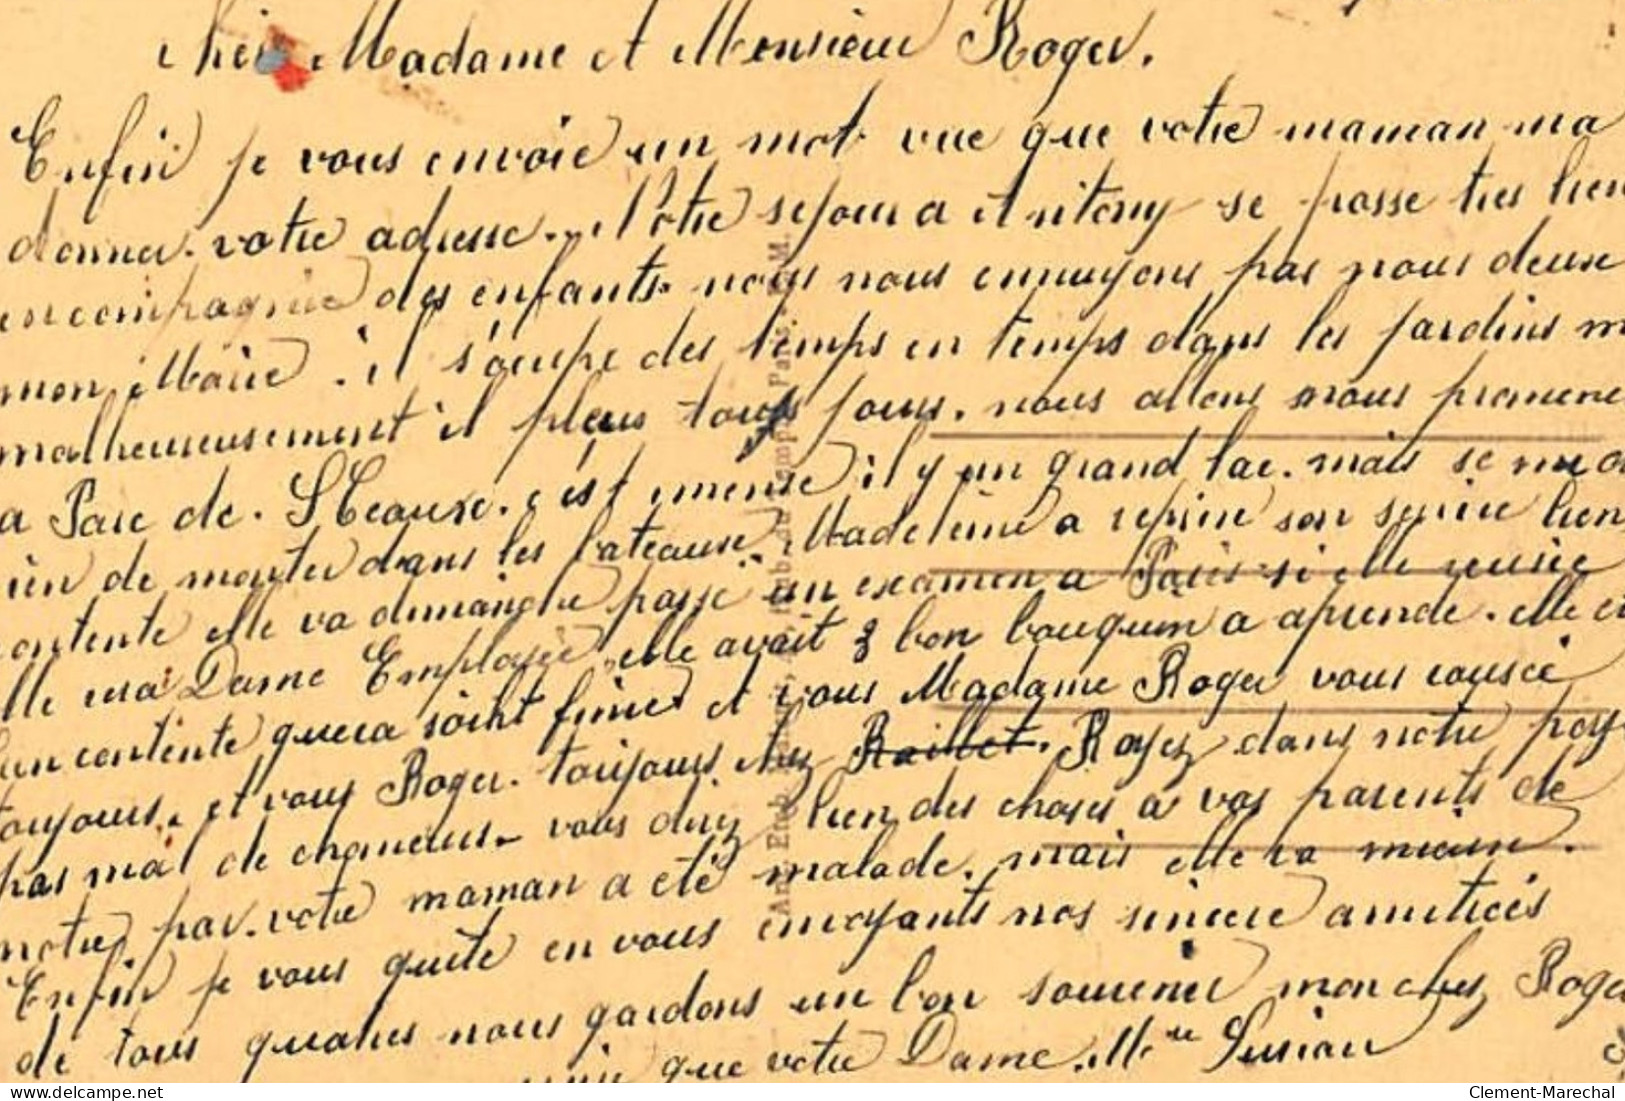 Cher Madame et Monsieur Roger.
Enfin je vous envoie un mot vue que votre maman ma
donner votre adresse. Notre sejour a Antony se passe tres bien
en compagnie des enfants. nous nous ennuyons pas nous deux
mon Marie. il s'ocupe des temps en temps dans les jardins
malheureusement il pleus tous jours. nous allons nous promene
a Parc de. SCeaux. c'est imense il y un grand lac. mais se
rien de monter dans les bateaux. Madeleine a reprie son servie bien
contente elle va dimanche passé un examen a Paris si elle reusie
elle sera Dame Employée elle avait 8 bon bouquem a aprende. elle
bien contente quera soiht finie et vous Madame Roger vous cousée
toujours. et vous Roger. toujours chez Raillet. Rayez dans notre
pas mal de chomeurs. vous direz bien des choses a vos parents de
notre par. votre maman a été malade. mais elle va mieux.
Enfin je vous quite en vous envoyants nos sincere amitiées
de tous quatres nous gardons un bon souvenir mon chez Roger
que votre Dame. Mme Lusiau
Paris.
delcampe.net
Clement-Marechal